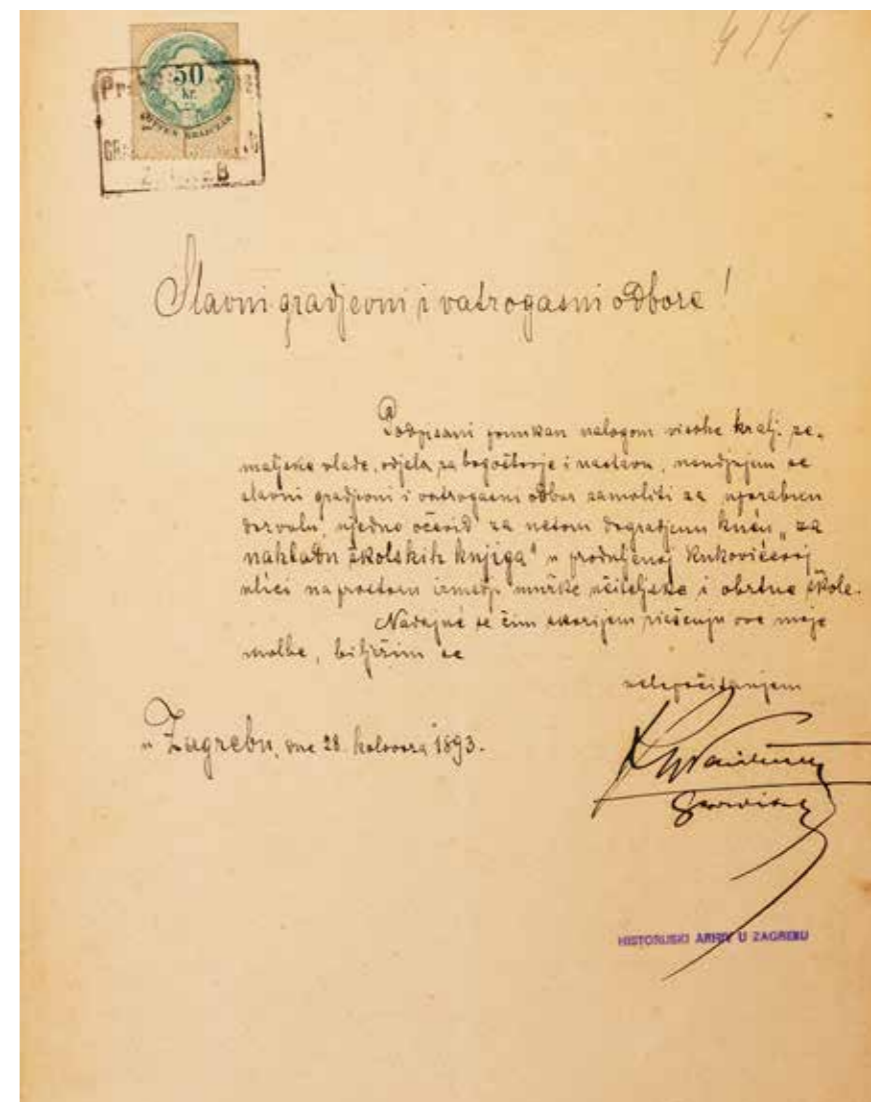 414
50
kr.
ZAGREB
Slavni gradjevni i vatrogasni odbore!
Podpisani ponukan nalogom visoke kralj. ze-
maljske vlade, odjela za bogoštovje i nastavu, usudjujem se
slavni gradjevni i vatrogasni odbor zamoliti za uporabnu
dozvolu, ujedno očevid za netom dogradjenu kuću „za
nakladu školskih knjiga" u produljenoj Kukovićevoj
ulici na prostoru izmedju mužke učiteljske i obrtne škole.
Nadajuć se čim skorijem riešenju ove moje
molbe, bilježim se
velepoštovanjem
u Zagrebu, dne 28. kolovoza 1893.
HISTORIJSKI ARHIV U ZAGREBU